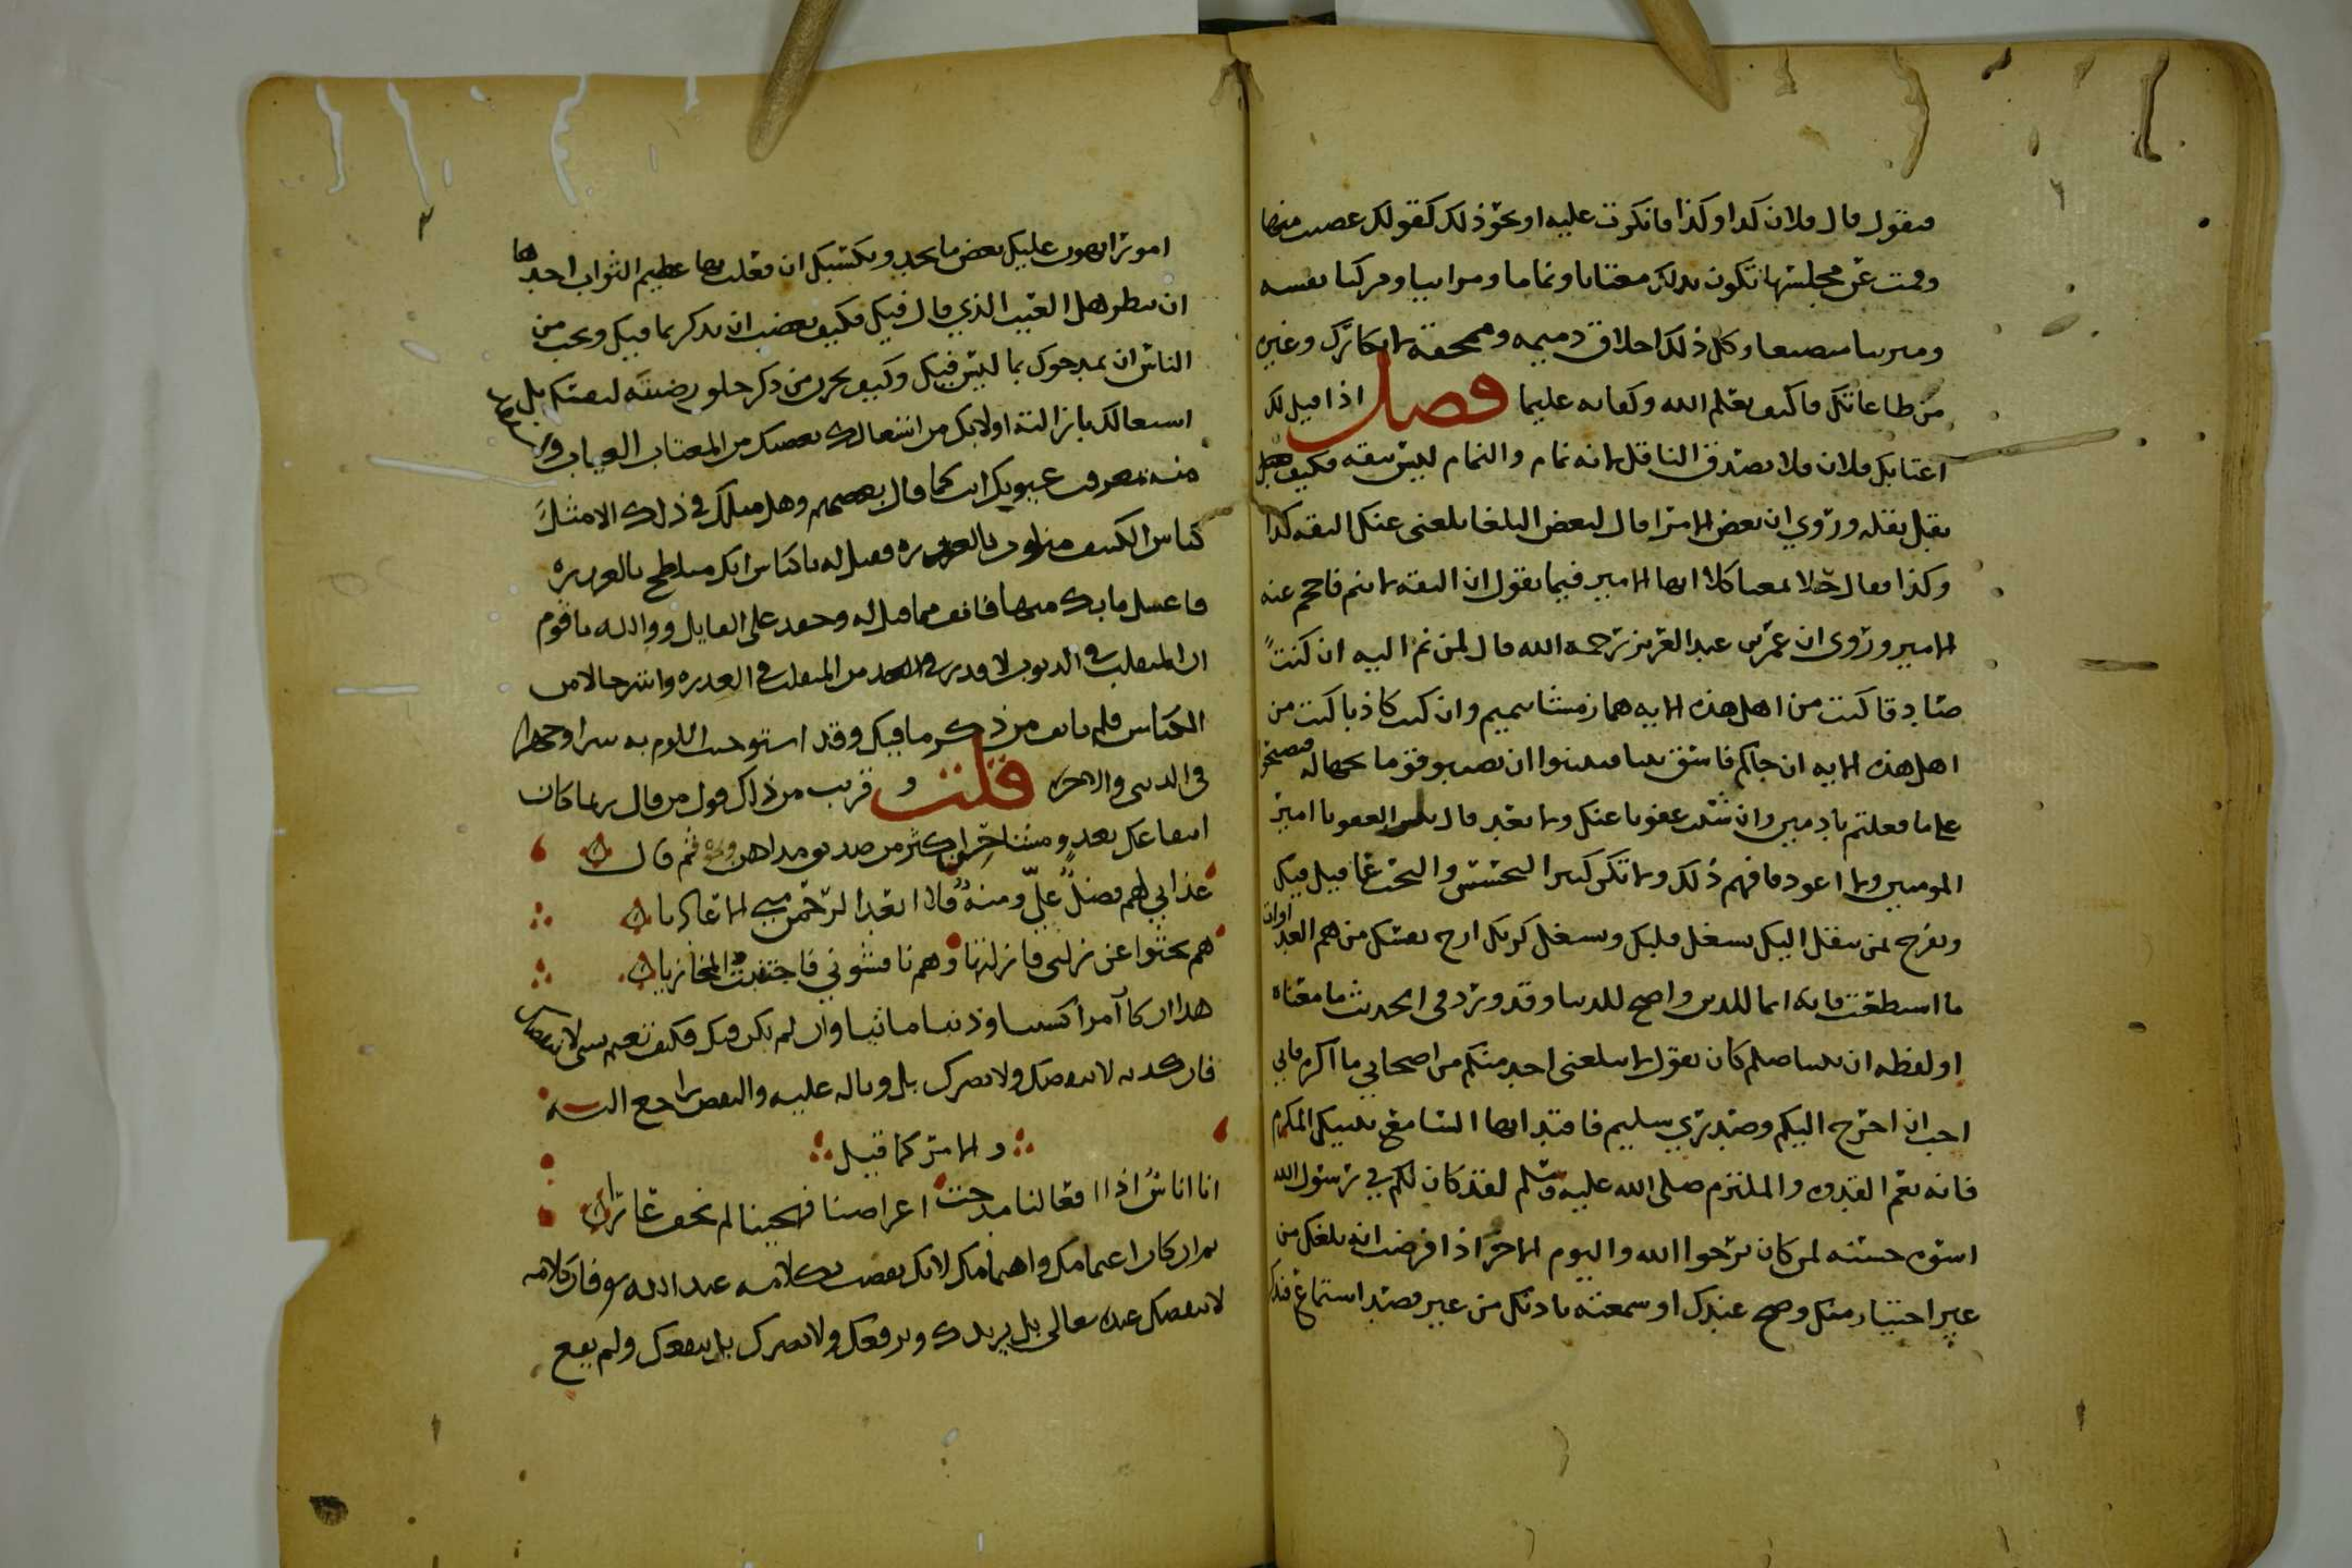 فيقول قال فلان كذا وكذا فانكرت عليه او نحو ذلك كقولك غضبت منها
وقمت عن مجلسها تكون بذلك مغتابا ونماما ومرائيا ومزكيا نفسه
وكل ذلك اخلاق ذميمه وممحقة لاذكارك وغيره
من طاعاتك فاكتف بعلم الله وكفا به عليما فصل اذا قيل لك
اغتابك فلان فلا تصدق الناقل لانه نمام والنمام ليس بثقه فكيف
يقبل نقله وروي ان بعض الامرا قال لبعض البلغا بلغني عنك الثقه كذا
وكذا فقال كلا ايها الامير فيما يقول ان الثقه لا ينم فاحجم عنه
الامير وروى ان عمر بن عبد العزيز رحمه الله قال لمن نم اليه ان كنت
صادقا كنت من اهل هذه الايه هماز مشا بنميم وان كنت كاذبا كنت من
اهل هذه الايه ان جاكم فاسق بنبا فتبينوا ان تصيبوا قوما بجهاله فتصبحوا
على ما فعلتم نادمين وان شئت عفونا عنك ولا تعد قال بل العفو يا امير
المومنين ولا اعود فافهم ذلك ولا تكن كثير التحسس والبحث عما قيل فيك
وتفرح لمن ينقل اليك يشغل قلبك ويشغل كربك ارح نفسك من هم العدوان
ما استطعت فانه انما للدين واصح للدنيا وقد ورد في الحديث ما معناه
او لفظه ان نبينا صلعم كان يقول لا يبلغني احد منكم من اصحابي ما اكره فاني
احب ان اخرج اليكم وصدري سليم فاقتد ايها السامع بنبيك المكرم
فانه نعم القدوه والملتزم صلى الله عليه وسلم لقد كان لكم في رسول الله
اسوه حسنه لمن كان يرجوا الله واليوم الاخر اذا فرضت انه بلغك من
غير اختيار منك وصح عندك او سمعته باذنك من غير قصد استماع فتذكر
امورا يهون عليك بعض ما تجد وتكسبك ان فعلت بها عظيم الثواب احدها
ان تنظر هل العيب الذي قال فيك فكيف تغضب ان يذكر بما فيك وتحب من
الناس ان يمدحوك بما ليس فيك وكيف تحزن من ذكر خلق رضيته لنفسك بل
اشتغالك بازالته اولا بك من اشتغالك بغضبك من المغتاب
منه تعرف عيوبك انت كما قال بعضهم وهل مثلك في ذلك الا مثل
كناس الكنيف متلوث بالعذره فقيل له يا كناس انك متلطخ بالعذره
فاغسل ما بك منها فانف مما قيل له وحقد على القايل ووالله يا قوم
ان المتقلب في الذنوب لاقذر من المتقلب في العذره واشر حالا من
الكناس فلم تانف من ذكر ما فيك وقد استوجبت اللوم به سرا وجهرا
في الدنيا والاخره قلت وقريب من ذلك قول من قال ربما كان
انتفاعك بعدو مشاحن اكثر من صديق مداهن ثم قال
عداتي لهم فضل علي ومنة فلا ابعد الرحمن عني الاعاديا
هم بحثوا عن زلتي فازلتها وهم نافسوني فاجتنبت المخازيا
هذا ان كان امرا كسبيا وذنبا ماثيا وان لم يكن فيك فكيف تغتم بشي لا ينقصك
فان كذبه لا ينقصك ولا يضرك بل وباله عليه والنقص راجع اليه
والامر كما قيل
انا اناس اذا افعالنا مدحت اعراضنا فهجينا لم نخف عارا
ثم ان كان اغتمامك واهتمامك لانك نقصت بكلامه عند الله فان كلامه
لا ينقصك عند الله تعالى بل يزيدك ويرفعك ولا يضرك بل ينفعك ولم يقع